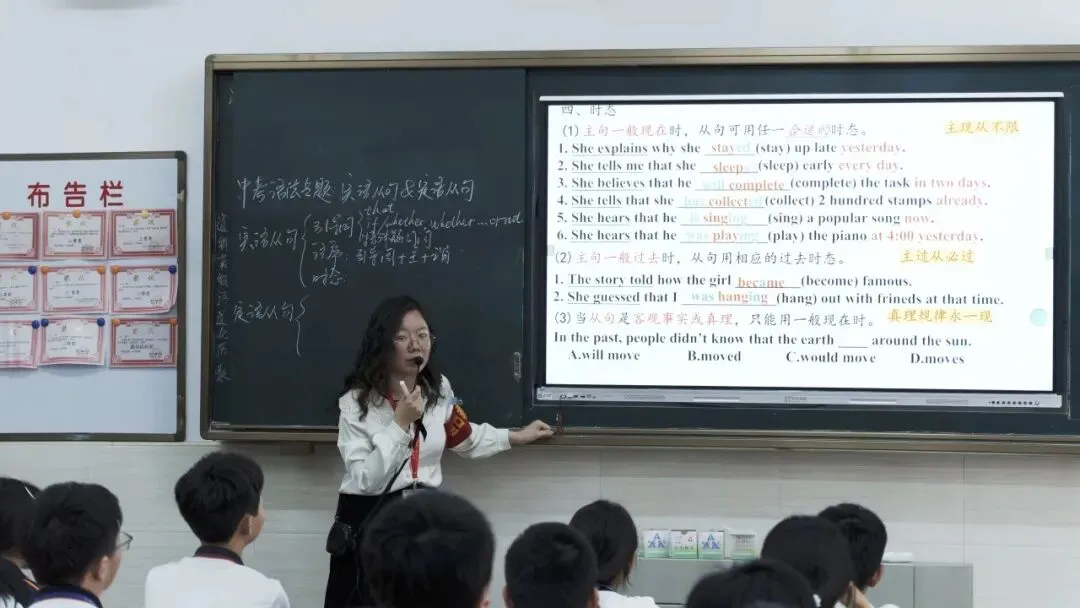 布告栏
中考语法专题 宾语从句&定语从句
that
宾语从句 引导词 if/whether whether...or not
特殊疑问词
语序: 引导词+主+谓
时态:
定语从句
四、时态
(1) 主句一般现在时，从句可用任一合适的时态。 主现从不限
1. She explains why she stayed (stay) up late yesterday.
2. She tells me that she sleeps (sleep) early every day.
3. She believes that he will complete (complete) the task in two days.
4. She tells that she has collected (collect) 2 hundred stamps already.
5. She hears that he is singing (sing) a popular song now.
6. She hears that he was playing (play) the piano at 4:00 yesterday.
(2) 主句一般过去时，从句用相应的过去时态。 主过从必过
1. The story told how the girl became (become) famous.
2. She guessed that I was hanging (hang) out with frineds at that time.
(3) 当从句是客观事实或真理，只能用一般现在时。 真理规律永一现
In the past, people didn't know that the earth ____ around the sun.
A.will move B.moved C.would move D.moves